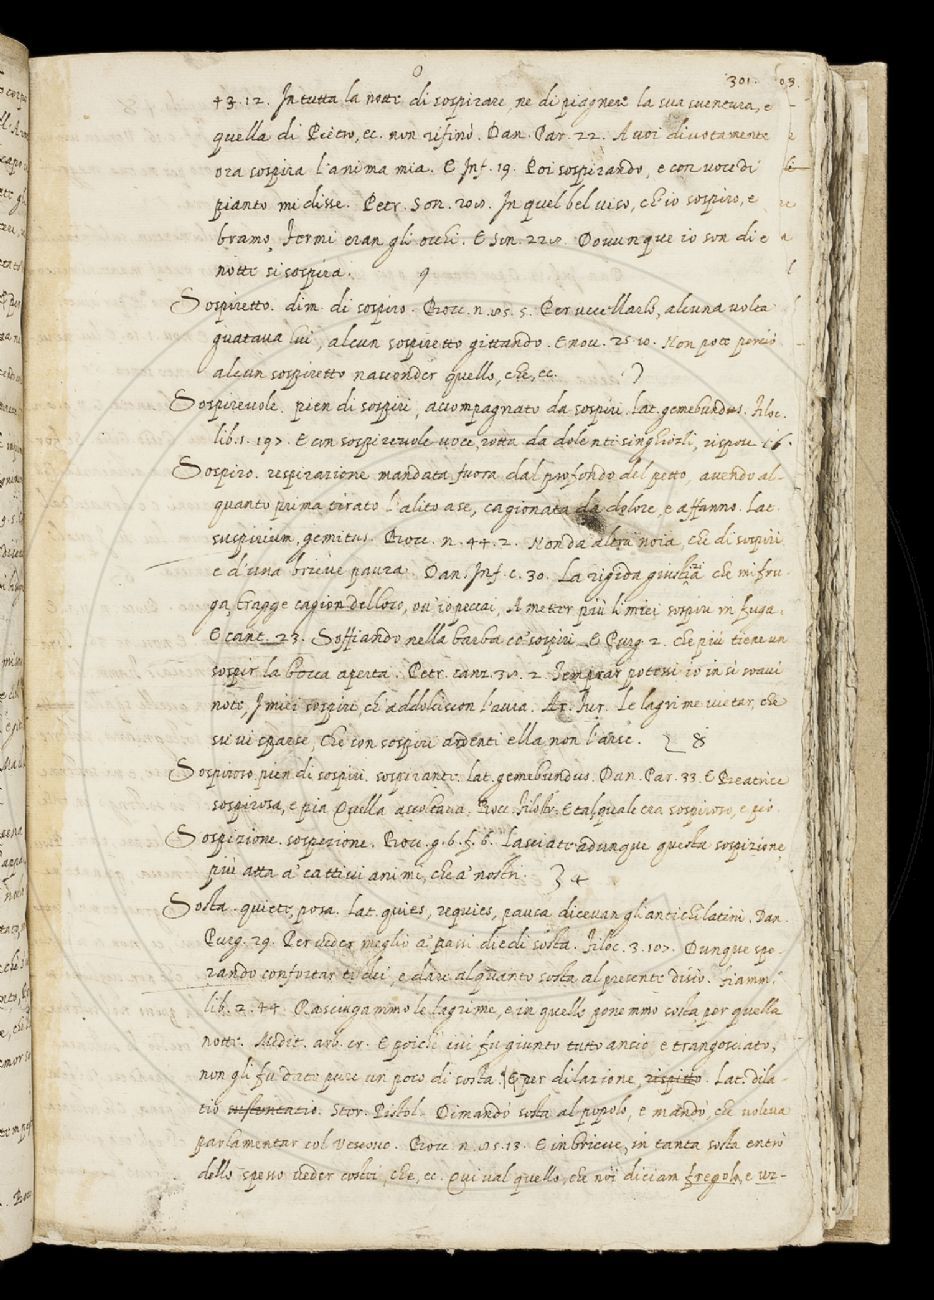 301.
43.12. In tutta la notte di sospirare ne di piagnere la sua sventura, e
quella di Pietro, ec. non rifinò. Dan. Par. 22. A voi divotamente
ora sospira l'anima mia. E Inf. 19. Poi sospirando, e con voce di
pianto mi disse. Petr. Son. In quel bel viso, ch'io sospiro, e
bramo, Fermi eran gli occhi. E Son. Dovunque io son dì e
notte si sospira. 9
Sospiretto. dim. di sospiro. Bocc. n. 5. Per uccellarlo, alcuna volta
guatava lui, alcun sospiretto gittando. E nov. Non potè perciò
alcun sospiretto nasconder quello, che, ec.
Sospirevole. pien di sospiri, accompagnato da sospiri. Lat. gemebundus. Filoc.
lib. 1. 197. E con sospirevole voce, rotta da dolenti singhiozzi, rispose
Sospiro. respirazione mandata fuora dal profondo del petto, avendo al-
quanto prima tirato l'alito a se, cagionata da dolore, e affanno. Lat.
suspirium, gemitus. Bocc. n. 44.2. Non da altra noia, che di sospiri
e d'una brieve paura. Dan. Inf. c. 30. La rigida giustizia che mi fru-
ga, tragge cagion del loco, ov'io peccai, A metter più li miei sospiri in fuga.
E cant. 23. Soffiando nella barba co' sospiri. E Purg. 2. che più tiene un
sospir la bocca aperta. Petr. canz. 2. Temprar potess'io in sì soavi
note, I miei sospiri, ch'addolciscon l'aura. Ar. Fur. Le lagrime vietar, che
su vi sparse, Che con sospiri ardenti ella non l'arse. 8
Sospiroso. pien di sospiri. sospirante. lat. gemebundus. Dan. Par. 33. E Beatrice
sospirosa, e pia Quella ascoltava. Bocc. Filostr. E tal quale era sospiroso, e
Sospizione. sospezione. Bocc. g. 6. f. 6. Lasciate adunque questa sospizione,
più atta a' cattivi animi, che a' nostri. 34
Sosta. quiete, posa. Lat. quies, requies, pausa dicevan gli antichi latini. Dan.
Purg. 29. Per veder meglio a' passi diedi sosta. Filoc. 3. 107. Dunque spe-
rando confortar ti dei, e dare alquanto sosta al presente disio. Fiamm.
lib. 2. 44. Rasciugammo le lagrime, e in quello ponemmo sosta per quella
notte. Medit. arb. cr. E poiche ivi fu giunto tutto ansio e trangosciato,
non gli fu dato pure un poco di sosta. E per dilazione, rispitto. Lat. dila-
tio Stor. Pistol. Dimandò sosta al popolo, e mandò, che voleva
parlamentar col Vescovo. Bocc. n. 13. E in brieve, in tanta sosta entrò
dello spesso veder costei, che, ec. Qui val quello, che noi diciam fregola, e uz-